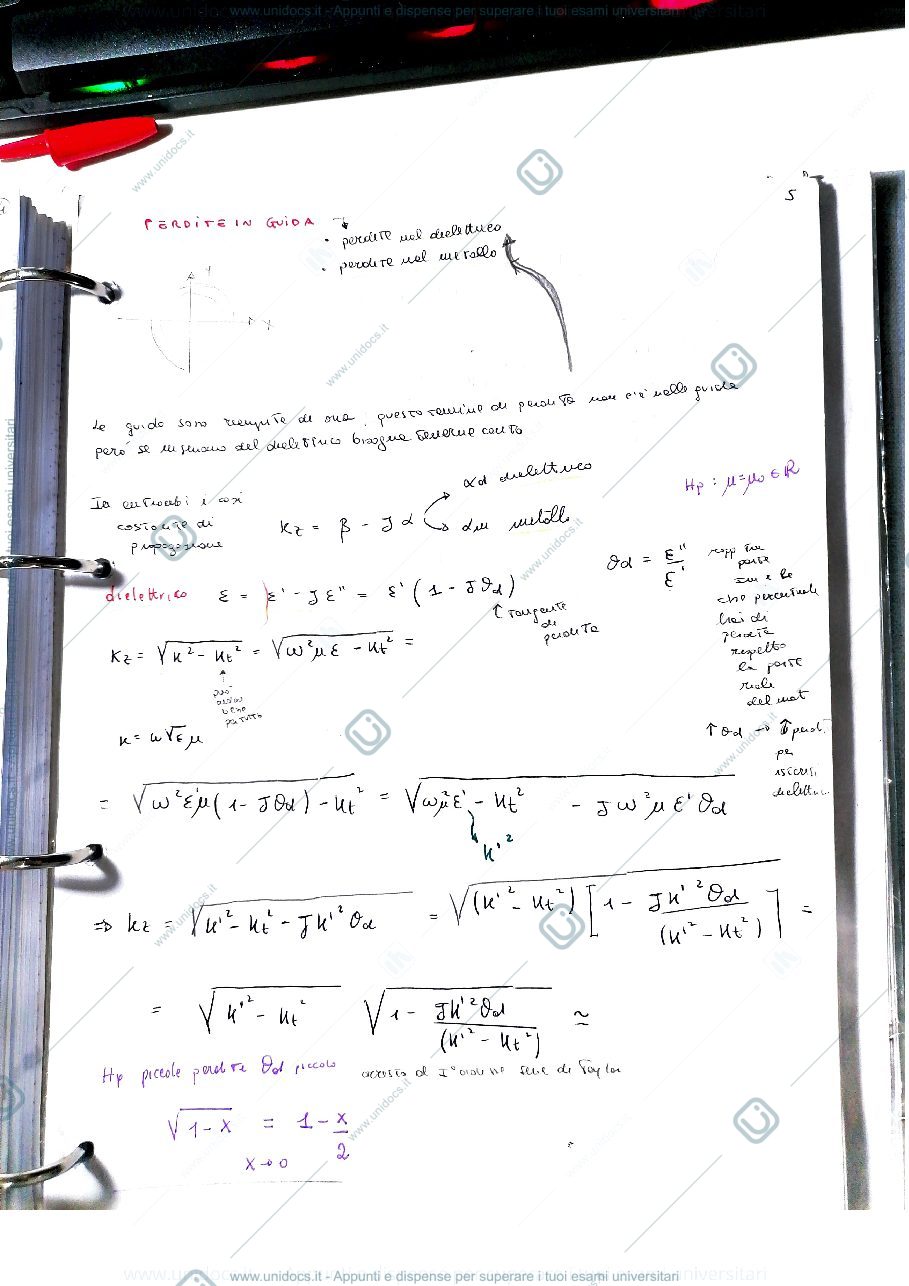 www.unidocs.it - Appunti e dispense per superare i tuoi esami universitari
5
PERDITE IN GUIDA
• perdite nel dielettrico
• perdite nel metallo
y
x
Le guide sono riempite di aria, questo termine di perdita non c'è nelle guide
però se riempiono del dielettrico bisogna tenerne conto
In entrambi i casi
costante di
propagazione
Kz = β - Jα
αd dielettrico
αm metallo
Hp : μ=μ0 ∈ ℝ
dielettrico ε = ε' - Jε'' = ε' (1 - Jϑd)
↑ tangente
di
perdita
ϑd = ε''/ε'
rapp tra
parte
che percentuale
hai di
perdita
rispetto
la parte
reale
del mat
Kz = √(K² - Kt²) = √(ω²με - Kt²) =
può
K = ω√εμ
↑ϑd → ↑perd.
per
dielettric.
= √(ω²ε'μ(1 - Jϑd) - Kt²) = √(ωμ²ε' - Kt² - Jω²με'ϑd)
K'²
⇒ Kz = √(K'² - Kt² - JK'²ϑd) = √((K'² - Kt²)[1 - JK'²ϑd/(K'² - Kt²)]) =
= √(K'² - Kt²) √(1 - JK'²ϑd/(K'² - Kt²)) ≃
Hp piccole perdite ϑd piccolo
arresto al I° ordine serie di Taylor
√(1-x) = 1 - x/2
x→0
www.unidocs.it - Appunti e dispense per superare i tuoi esami universitari